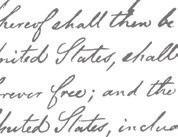 hereof shall then be
United States, shall
orever free; and the
United States, includ